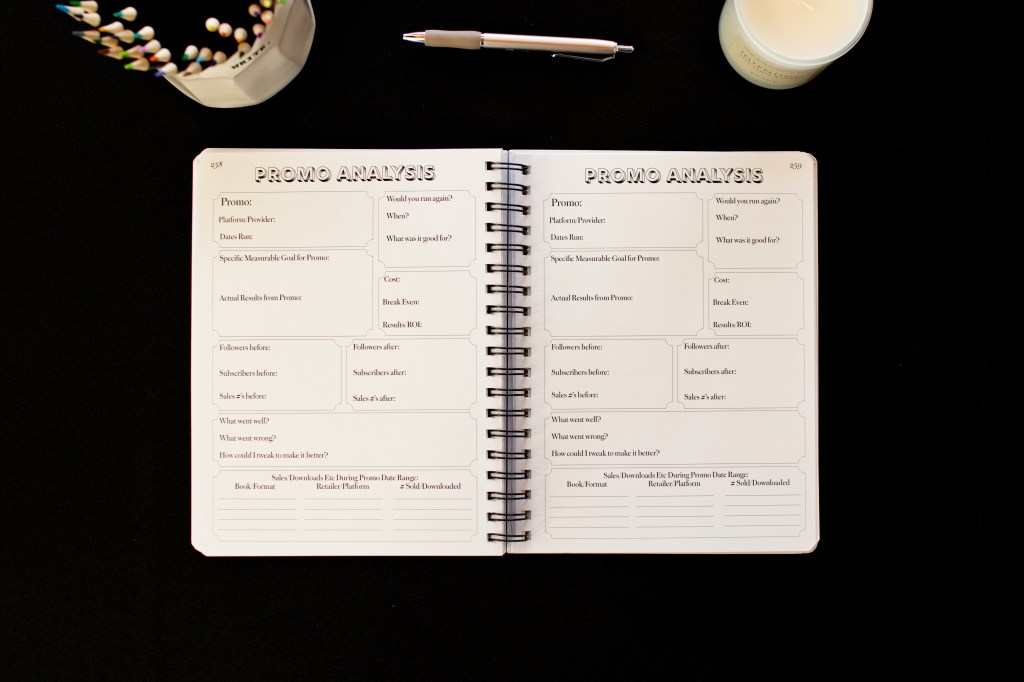 258
PROMO ANALYSIS
Promo:
Platform/Provider:
Dates Run:
Would you run again?
When?
What was it good for?
Specific Measurable Goal for Promo:
Actual Results from Promo:
Cost:
Break Even:
Results/ROI:
Followers before:
Subscribers before:
Sales #'s before:
Followers after:
Subscribers after:
Sales #'s after:
What went well?
What went wrong?
How could I tweak to make it better?
Sales/Downloads Etc During Promo Date Range:
Book/Format Retailer/Platform # Sold/Downloaded
259
PROMO ANALYSIS
Promo:
Platform/Provider:
Dates Run:
Would you run again?
When?
What was it good for?
Specific Measurable Goal for Promo:
Actual Results from Promo:
Cost:
Break Even:
Results/ROI:
Followers before:
Subscribers before:
Sales #'s before:
Followers after:
Subscribers after:
Sales #'s after:
What went well?
What went wrong?
How could I tweak to make it better?
Sales/Downloads Etc During Promo Date Range:
Book/Format Retailer/Platform # Sold/Downloaded